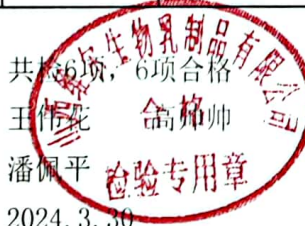 共检6项，6项合格
王伟花 高帅帅
潘佩平
2024.3.30
生物乳制品有限公司
合格
检验专用章